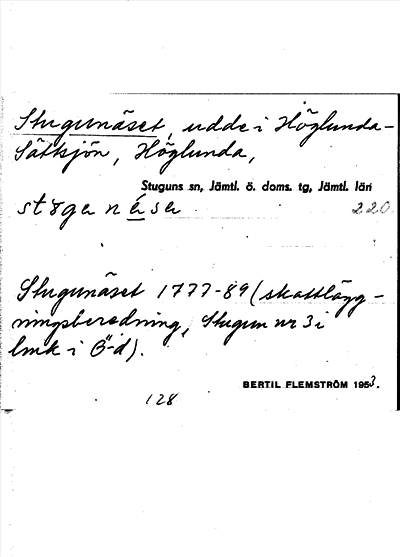 Stugunäset, udde i Höglunda-
Sättsjön, Höglunda,
Stuguns sn, Jämtl. ö. doms. tg, Jämtl. län
220
Stugunäset 1777-89 (skattlägg-
ningsberedning, Stugun nr 3 i
lmk i Ö-d).
BERTIL FLEMSTRÖM 1953.
128